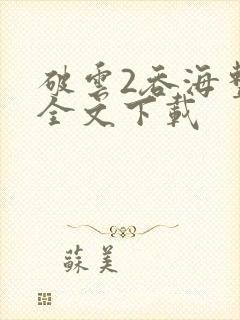 破雲2吞海整
全文下載
蘇美